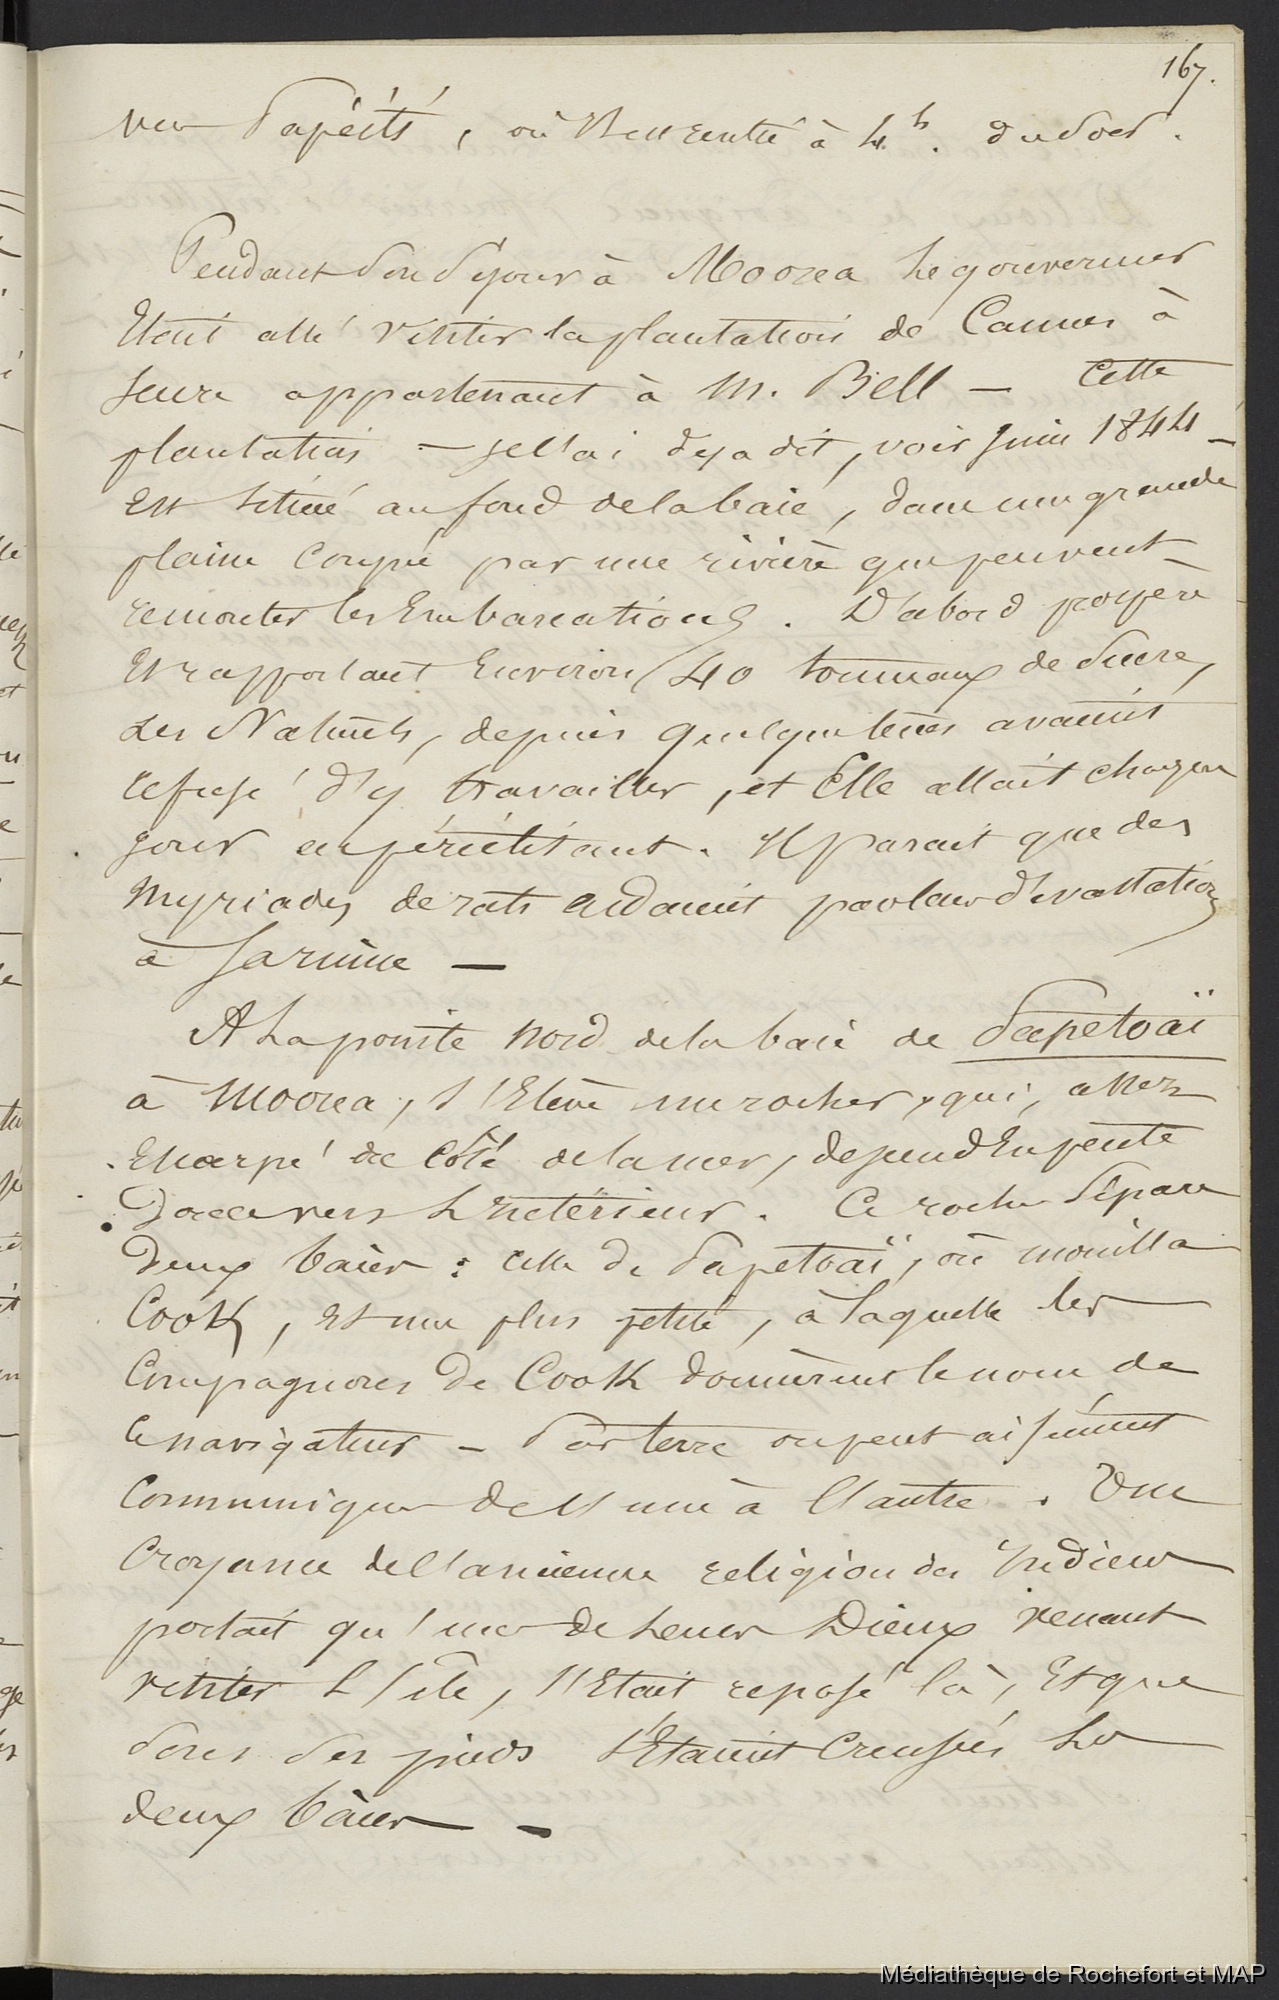 167.
vers Papéïti, où Il est rentré à 4.h. du soir.
Pendant son séjour à Moorea le gouverneur
Etait allé visiter la plantation de Cannes à
sucre appartenant à M. Bell — Cette
plantation — je l'ai deja dit, voir Juin 1844 —
Est située au fond de la baie, dans une grande
plaine coupée par une rivière que peuvent
remonter les Embarcations. D'abord prospère
Et rapportant Environ 40 tonneaux de Sucre,
Les Naturels, depuis quelque tems avaient
refusé d'y travailler, et Elle allait chaque
jour en périclitant. Il parait que des
Myriades de rats aidaient par leurs dévastations
à sa ruine —
A La pointe Nord de la baie de Papetoaï
à Moorea, s'Elève un rocher, qui, assez
Escarpé du côté de la mer, descend En pente
Douce vers L'Intérieur. Ce rocher Sépare
Deux baies : celle de Papetoaï, où mouilla
Cook, Et une plus petite, à laquelle les
Compagnons de Cook donnèrent le nom de
Ce navigateur — Par terre on peut aisément
Communiquer de l'une à l'autre. Une
Croyance de l'ancienne religion des Indiens
portait qu'un de Leurs Dieux venant
visiter L'Ile, s'Etait reposé là, Et que
sous ses pieds s'Etaient Creusées Les
deux baies —
Médiathèque de Rochefort et MAP